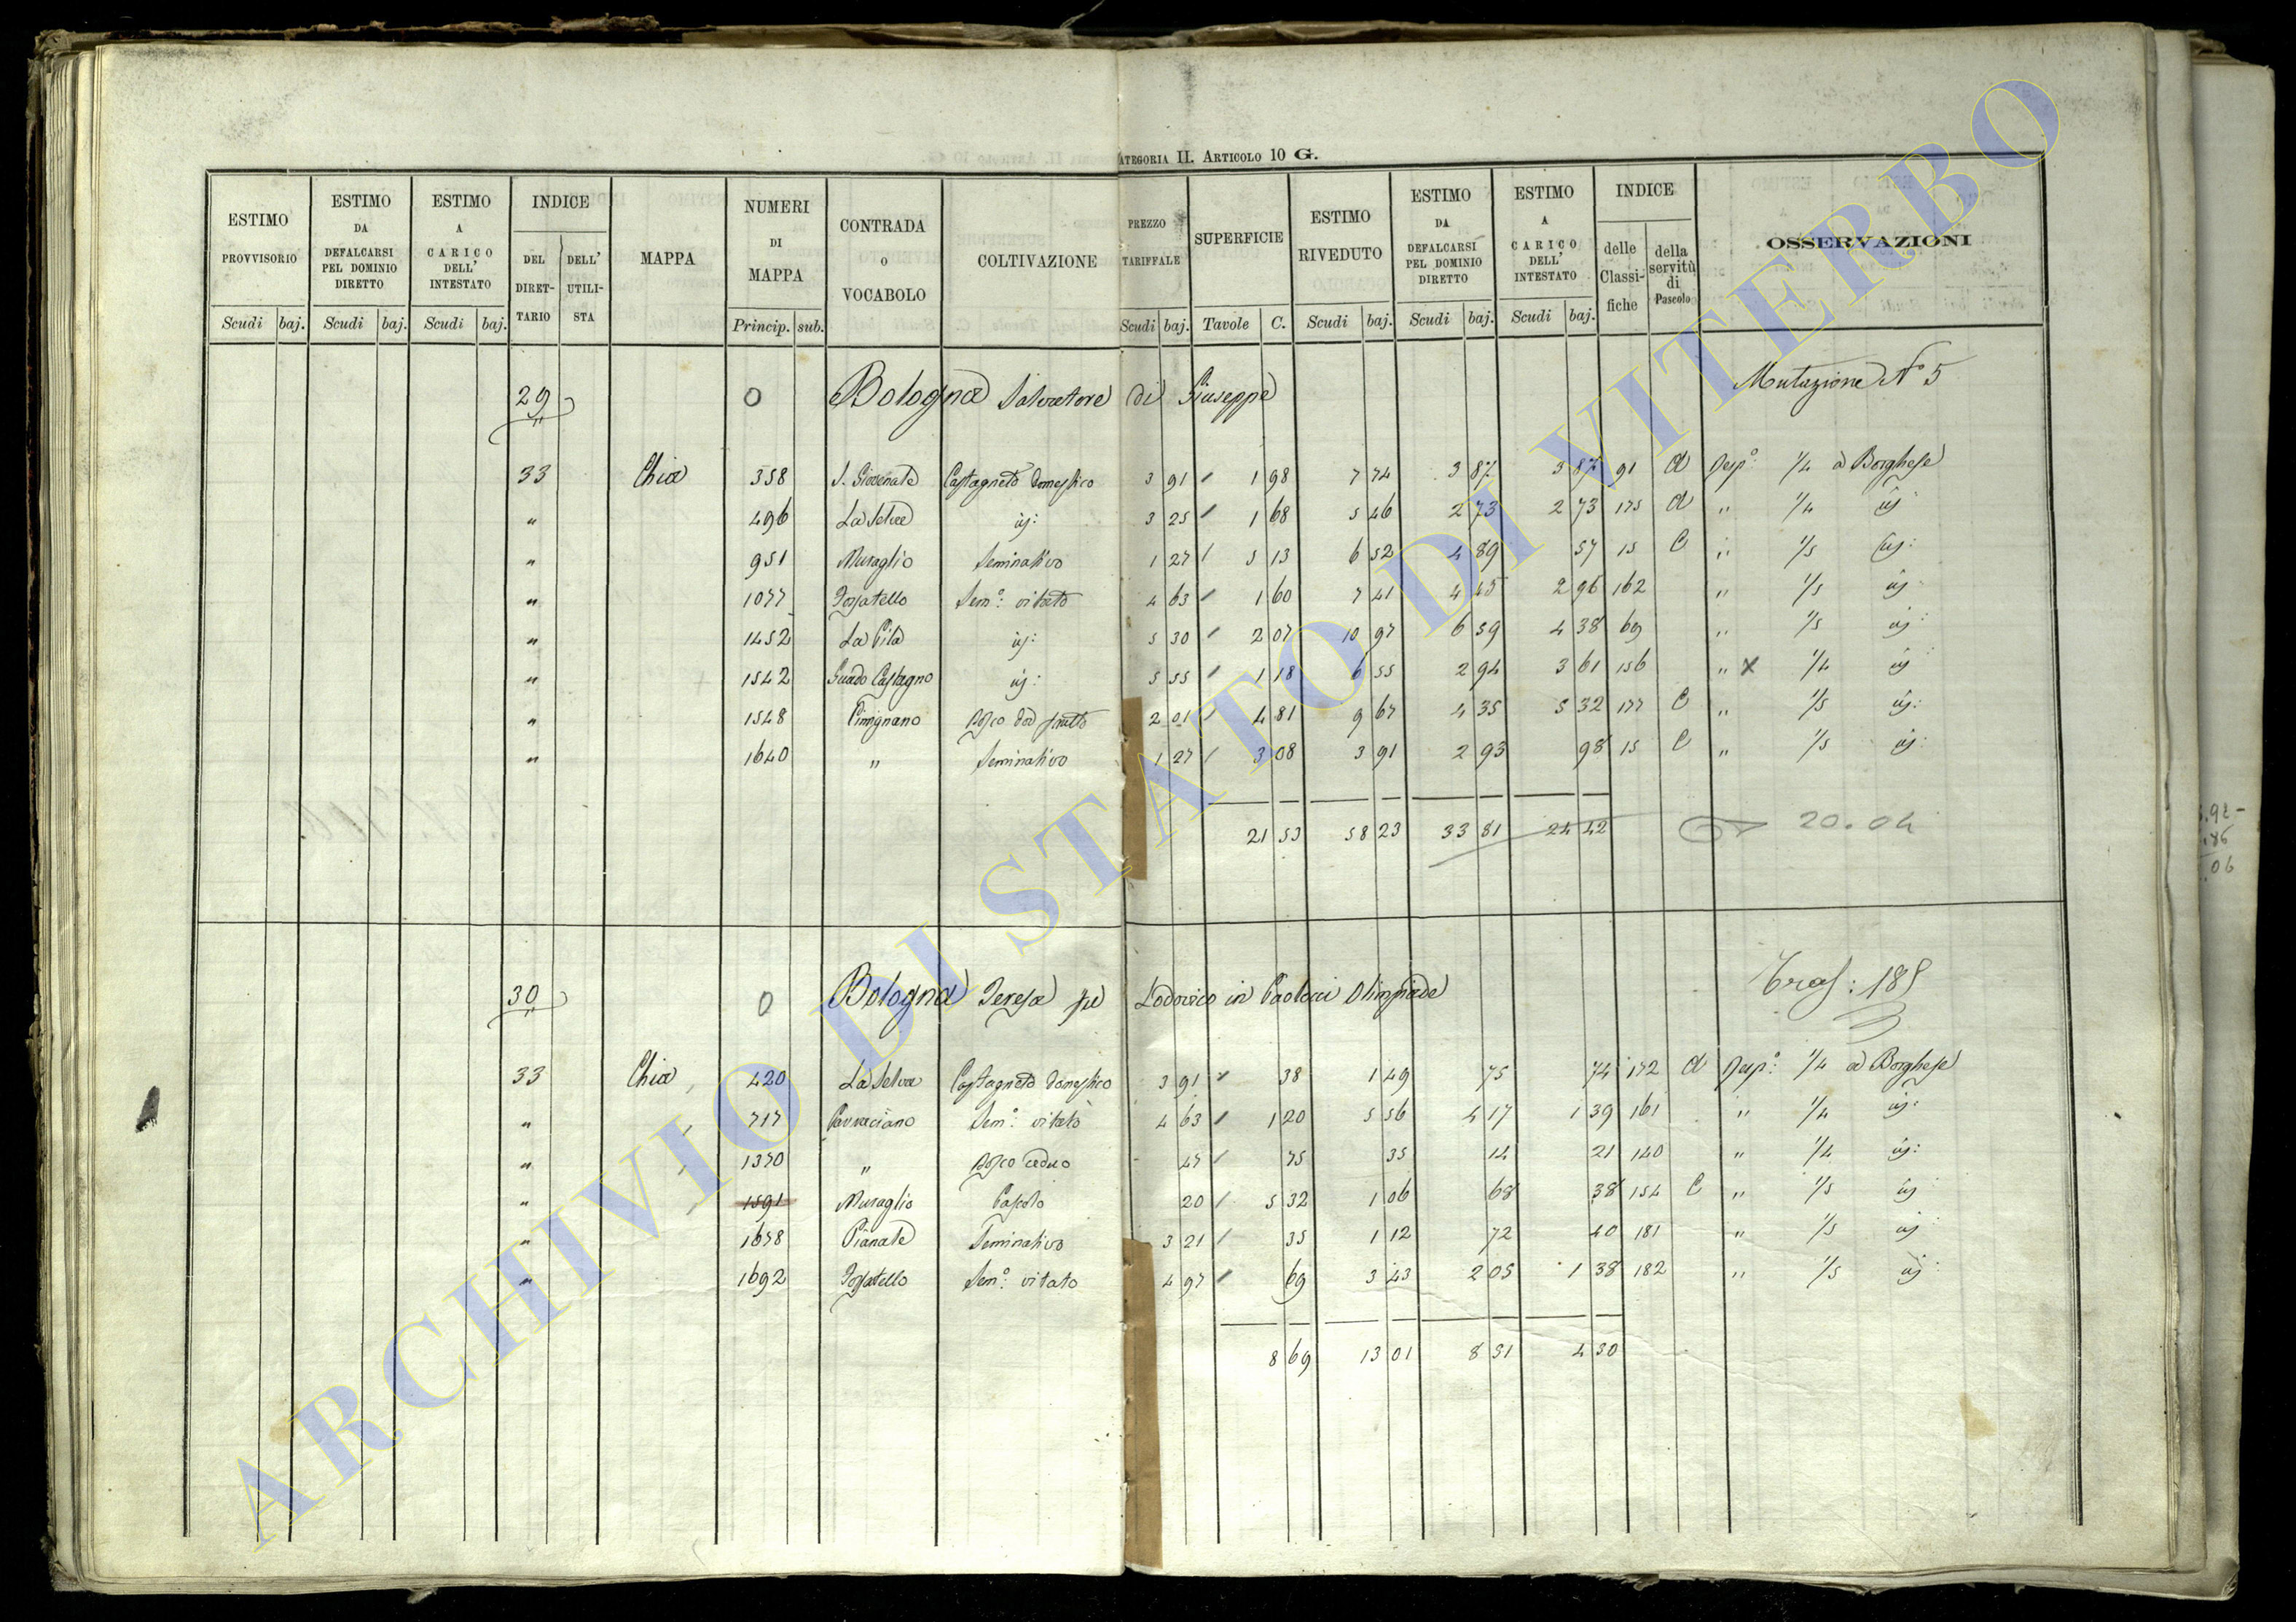 ATEGORIA II. ARTICOLO 10 G.
ESTIMO PROVVISORIO Scudi baj. ESTIMO DA DEFALCARSI PEL DOMINIO DIRETTO Scudi baj. ESTIMO A CARICO DELL' INTESTATO Scudi baj. INDICE DEL DIRET-TARIO DELL' UTILI-STA MAPPA NUMERI DI MAPPA Princip. sub. CONTRADA O VOCABOLO COLTIVAZIONE PREZZO TARIFFALE Scudi baj. SUPERFICIE Tavole C. ESTIMO RIVEDUTO Scudi baj. ESTIMO DA DEFALCARSI PEL DOMINIO DIRETTO Scudi baj. ESTIMO A CARICO DELL' INTESTATO Scudi baj. INDICE delle Classi-fiche della servitù di Pascolo OSSERVAZIONI
29 0 Bologna Salvatore di Giuseppe Mutazione N° 5
33 Chia 358 S. Giovenale Castagneto domestico 3 91 1 98 7 74 3 87 3 87 91 a Resp.º: 1/4 a Borghese
" 496 La Selva id: 3 25 1 68 5 46 2 73 2 73 175 a " 1/4 id
" 951 Muraglio Seminativo 1 27 5 13 6 52 4 89 57 15 C " 1/5 id:
" 1077 Fossatello Sem.º: vitato 4 63 1 60 7 41 4 45 2 96 162 " 1/5 id
" 1452 La Pila id: 5 30 2 07 10 97 6 59 4 38 69 " 1/5 id:
" 1542 Guado Castagno id: 5 55 1 18 6 55 2 94 3 61 156 " x 1/4 id
" 1548 Pimignano Bosco da frutto 2 01 4 81 9 67 4 35 5 32 177 C " 1/5 id:
" 1640 " Seminativo 1 27 3 08 3 91 2 93 98 15 C " 1/5 id:
21 53 58 23 33 81 24 42 20.04
30 0 Bologna Teresa fu Lodovico in Paolucci Olimpiade Tras: 185
33 Chia 420 La Selva Castagneto domestico 3 91 38 1 49 75 74 172 a Resp.º: 1/4 a Borghese
" 717 Sem.º: vitato 4 63 1 20 5 56 4 17 1 39 161 " 1/4 id:
" 1370 " Bosco ceduo 47 75 35 14 21 140 " 1/4 id:
" 1591 Muraglio Pascolo 20 5 32 1 06 68 38 154 C " 1/5 id
" 1678 Pianale Seminativo 3 21 35 1 12 72 40 181 " 1/5 id
" 1692 Fossatello Sem.º: vitato 4 97 69 3 43 2 05 1 38 182 " 1/5 id
8 69 13 01 8 51 4 50
ARCHIVIO DI STATO DI VITERBO